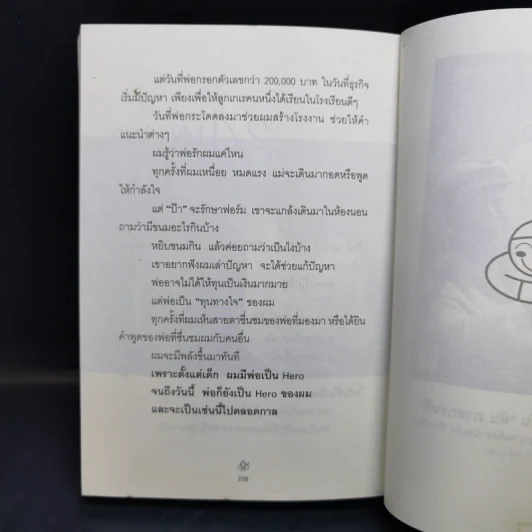 แต่วันที่พ่อกรอกตัวเลขกว่า 200,000 บาท ในวันที่ธุรกิจ
เริ่มมีปัญหา เพียงเพื่อให้ลูกเกเรคนหนึ่งได้เรียนในโรงเรียนดีๆ
วันที่พ่อกระโดดลงมาช่วยผมสร้างโรงงาน ช่วยให้คำ
แนะนำต่างๆ
ผมรู้ว่าพ่อรักผมแค่ไหน
ทุกครั้งที่ผมเหนื่อย หมดแรง แม่จะเดินมากอดหรือพูด
ให้กำลังใจ
แต่ “ป๊า” จะรักษาฟอร์ม เขาจะแกล้งเดินมาในห้องนอน
ถามว่ามีขนมอะไรกินบ้าง
หยิบขนมกิน แล้วค่อยถามว่าเป็นไงบ้าง
เขาอยากฟังผมเล่าปัญหา จะได้ช่วยแก้ปัญหา
พ่ออาจไม่ได้ให้ทุนเป็นเงินมากมาย
แต่พ่อเป็น “ทุนทางใจ” ของผม
ทุกครั้งที่ผมเห็นสายตาชื่นชมของพ่อที่มองมา หรือได้ยิน
คำพูดของพ่อที่ชื่นชมผมกับคนอื่น
ผมจะมีพลังขึ้นมาทันที
เพราะตั้งแต่เด็ก ผมมีพ่อเป็น Hero
จนถึงวันนี้ พ่อก็ยังเป็น Hero ของผม
และจะเป็นเช่นนี้ไปตลอดกาล
250